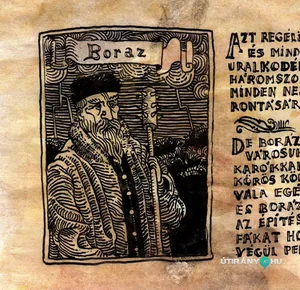 Boraz
AZT REGÉLI
ÉS MIND
URALKODÉ
HÁROMSZO
MINDEN NE
RONTÁSÁR
DE BORAZ
VÁROSU
KARÓKKAL
KÖRÖS KÖ
VALA EGÉ
ÉS BORAZ
AZ ÉPÍTÉS
FÁKAT HO
VÉGÜL PE
ÚTIRÁNY HU